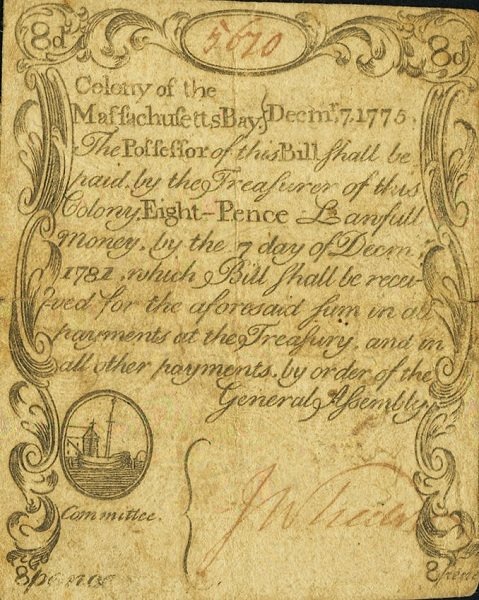 8d 5610 8d
Colony of the
Massachusetts Bay } Decmr. 7. 1775.
The Possessor of this Bill shall be
paid, by the Treasurer of this
Colony, Eight-Pence Lawfull
Money, by the 7 day of Decmr.
1781, which Bill shall be recei-
ved for the aforesaid sum in all
payments at the Treasury, and in
all other payments, by order of the
General Assembly.
Committee.
8pence 8pence